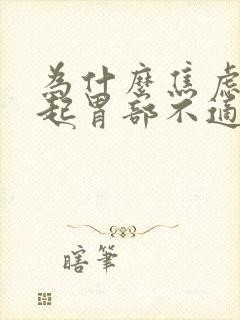 為什麼焦慮
起胃部不適
瞎筆